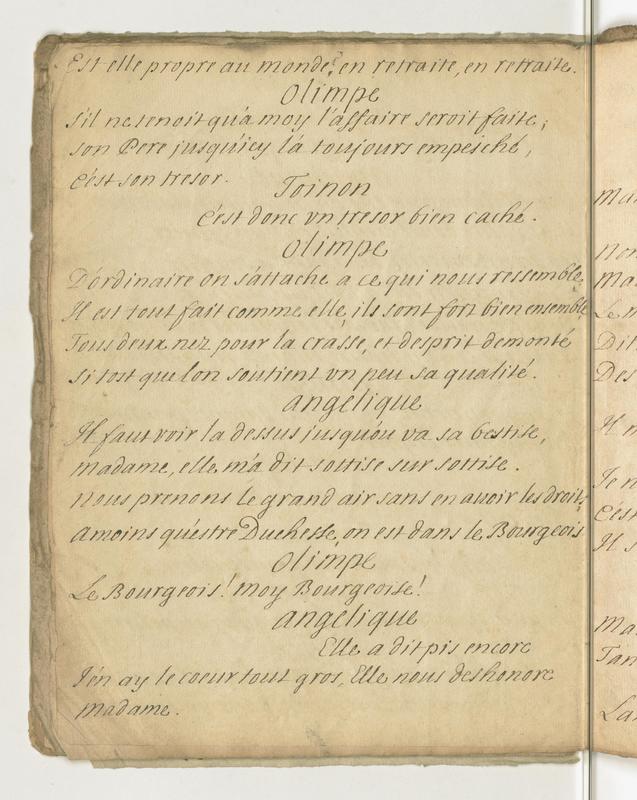 Est elle propre au monde? en retraite, en retraite.
Olimpe
s'il ne tenoit qu'a moy l'affaire seroit faite;
son Pere jusqu'icy l'a toujours empesché,
c'est son tresor.
Toinon
c'est donc vn tresor bien caché.
Olimpe
D'ordinaire on s'attache a ce qui nous ressemble,
Il est tout fait comme elle, ils sont fort bien ensemble
Tous deux nez pour la crasse, et desprit demonté
si tost que l'on soutient vn peu sa qualité.
angelique
Il faut voir la dessus jusqu'ou va sa bestise,
madame, elle m'a dit sottise sur sottise.
nous prenons le grand air sans en auoir les droits,
amoins qu'estre Duchesse, on est dans le Bourgeois
Olimpe
Le Bourgeois! moy Bourgeoise!
angelique
Elle a dit pis encore
J'en ay le coeur tout gros, Elle nous deshonore
madame.